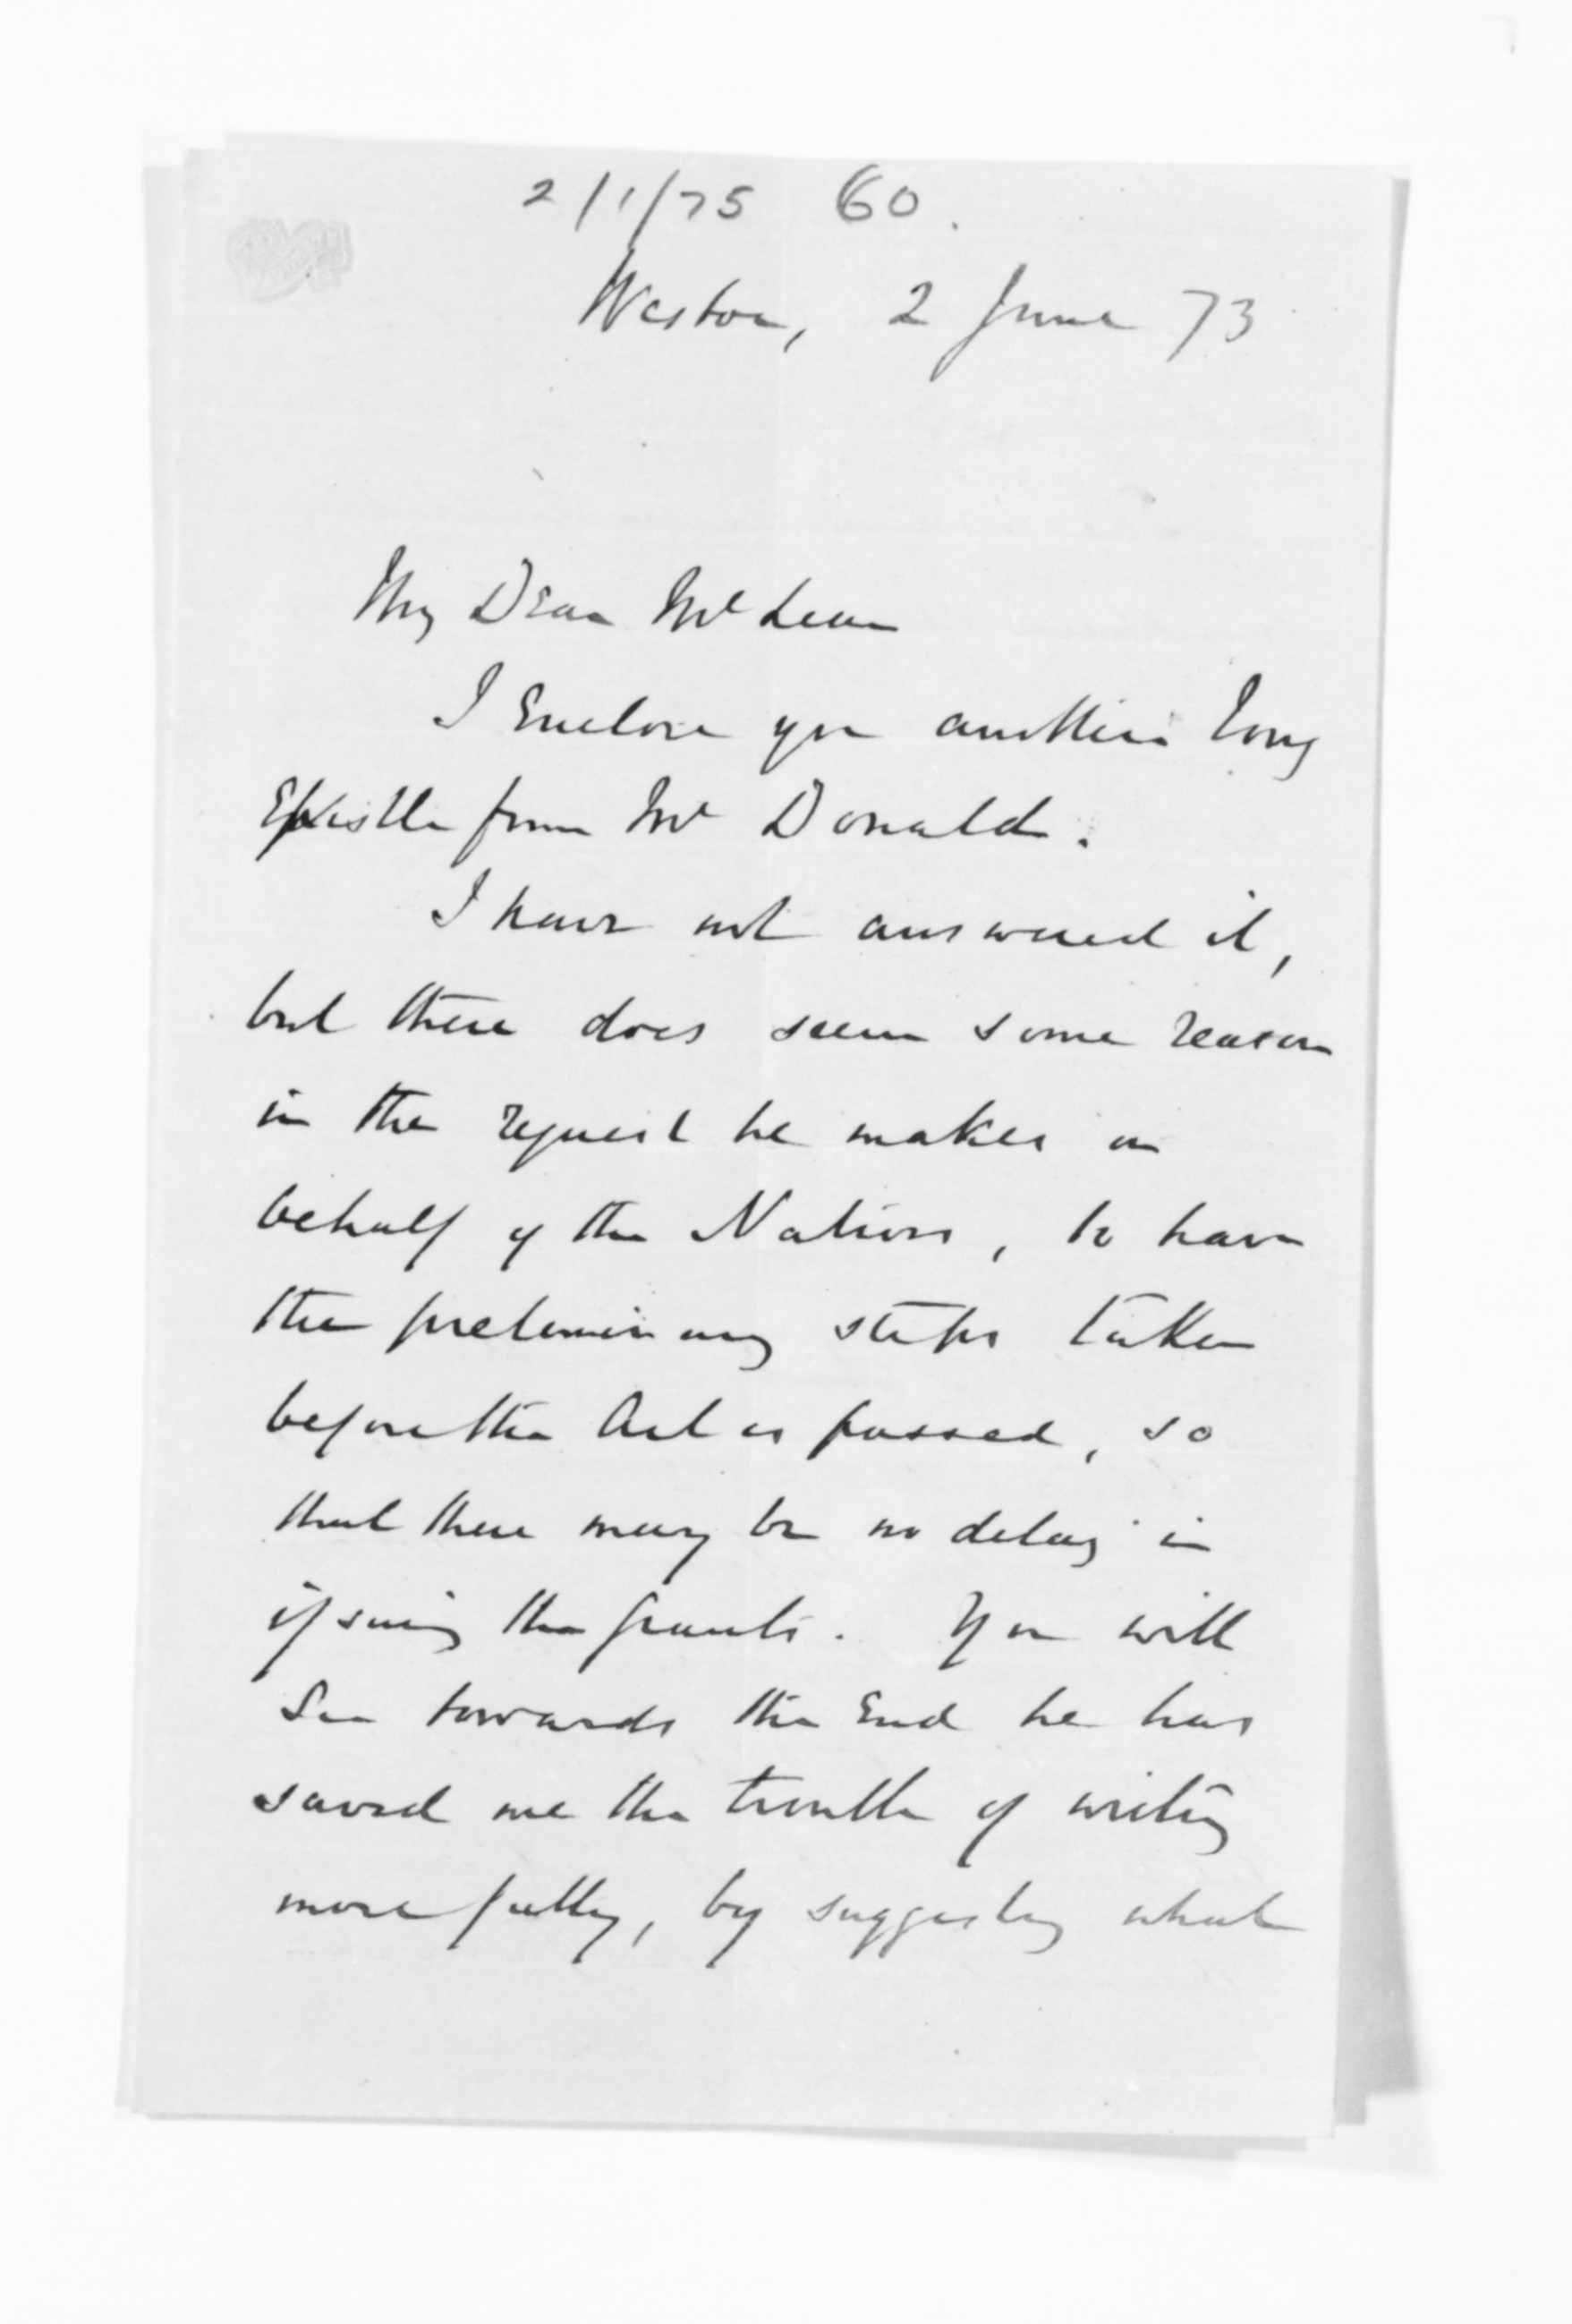 2/1/75 60.
Weston, 2 June 73
My Dear McLean
I Enclose you another long
Epistle from Mc Donald.
I have not answered it,
but there does seem some reason
in the request he makes on
behalf of the Natives, to have
the preliminary steps taken
before the Act is passed, so
that there may be no delay in
issuing the grants. You will
See towards the End he has
saved me the trouble of writing
more fully, by suggesting what